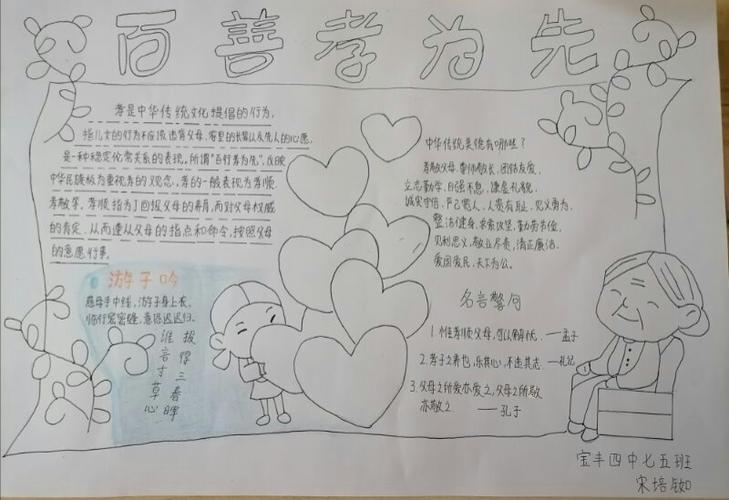 百善孝为先
孝是中华传统文化提倡的行为,
指儿女的行为不应该违背父母、家里的长辈以及先人的心愿,
是一种稳定伦常关系的表现。所谓“百行孝为先”,反映
中华民族极为重视孝的观念。孝的一般表现为孝顺、
孝敬等。孝顺指为了回报父母的养育,而对父母权威
的肯定,从而遵从父母的指点和命令,按照父母
的意愿行事。
游子吟
慈母手中线,游子身上衣。
临行密密缝,意恐迟迟归。
谁言寸草心
报得三春晖
中华传统美德有哪些?
孝敬父母、尊师敬长、团结友爱、
立志勤学、自强不息、谦虚礼貌、
诚实守信、严己宽人、人贵有耻、见义勇为、
整洁健身、求索攻坚、勤劳节俭、
见利思义、敬业尽责、清正廉洁、
爱国爱民、天下为公。
名言警句
1.惟孝顺父母,可以解忧。——孟子
2.孝子之养也,乐其心,不违其志。—礼记
3.父母之所爱亦爱之,父母之所敬
亦敬之 ——孔子
宝丰四中七五班
宋培如